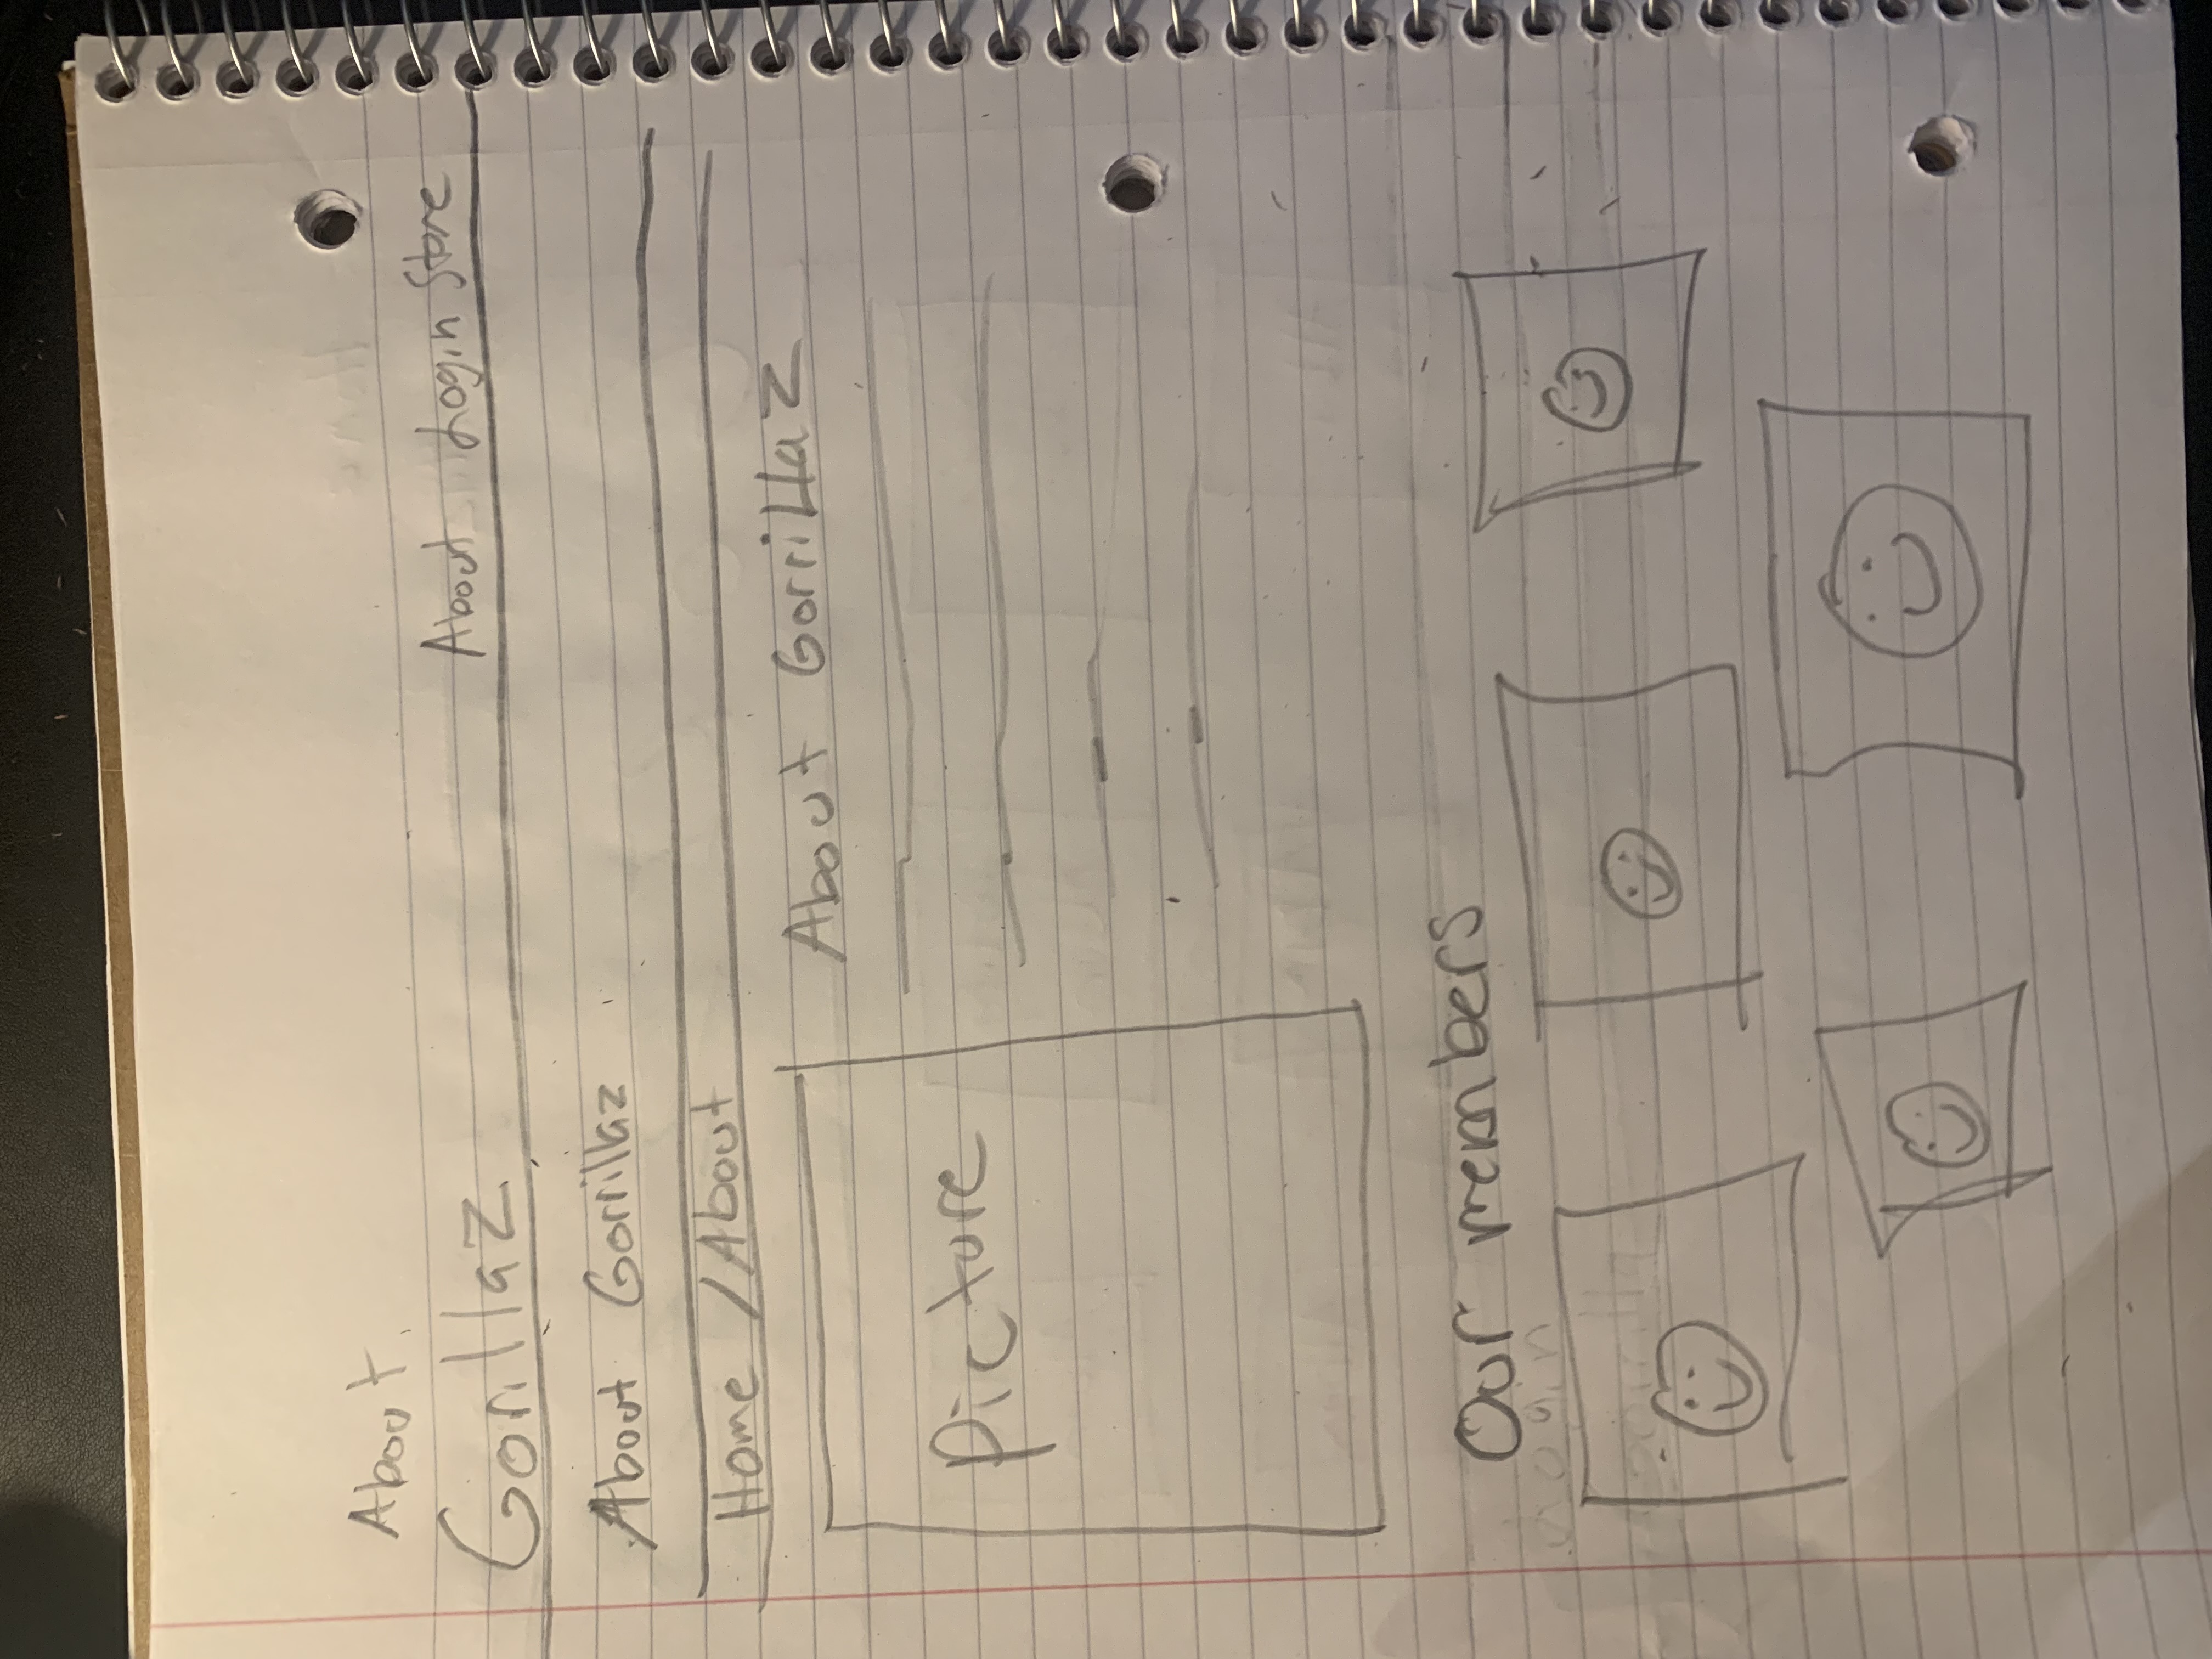 About
Gorillaz
About Login Store
About Gorrillaz
Home / About
Picture
About Gorrillaz
Our members
Login